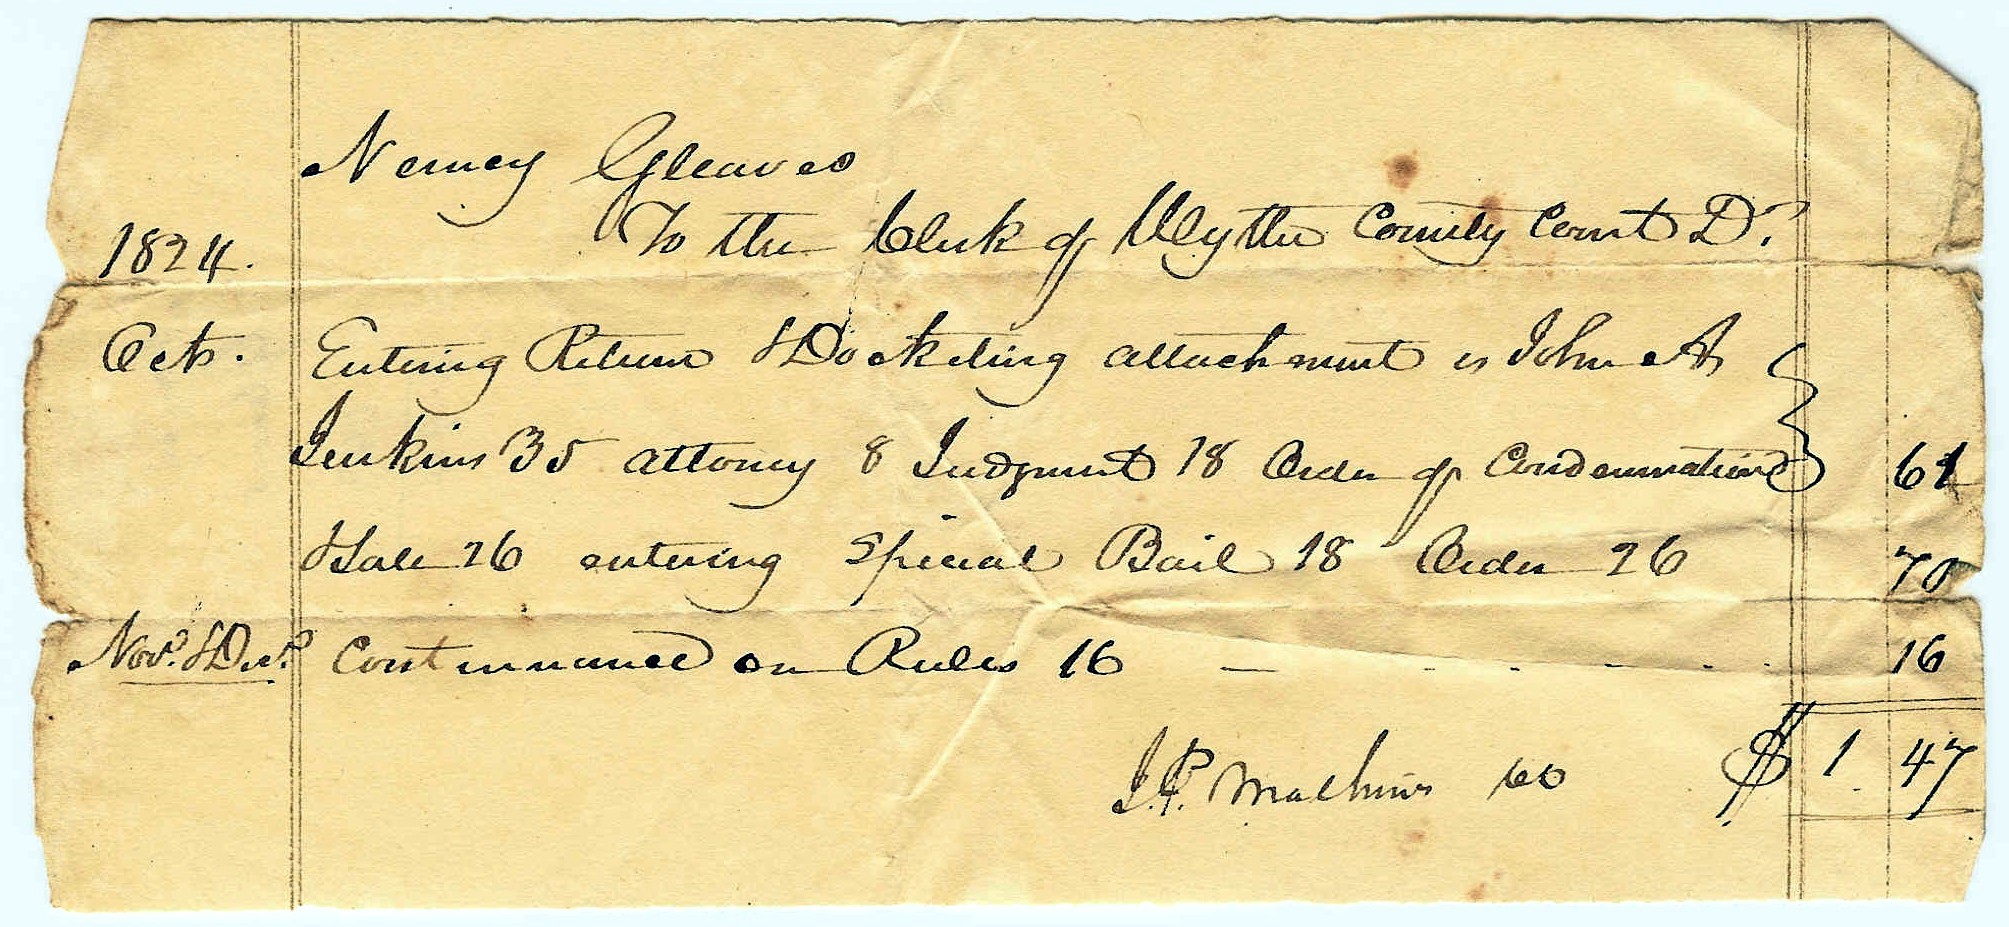 Nancy Gleaves
1824. To the Clerk of Wythe County Court Dr.
Octo. Entering Return & Docketing attachment vs John A
Jenkins 35 attorney 8 Judgment 18 Order of Condemnation 61
& Sale 26 entering Special Bail 18 Order 26 70
Novr. & Decr. Continuance on Rules 16 — - - - - - 16
J.P. Mathews $ 1. 47